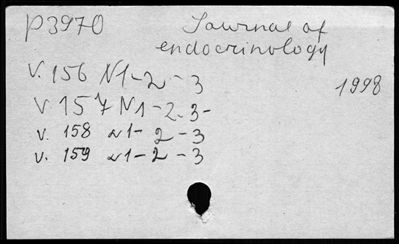 P3970 Journal of
endocrinology
V. 156 N1-2-3 1998
V 157 N1-2.3-
v. 158 N1-2-3
v. 159 N1-2-3